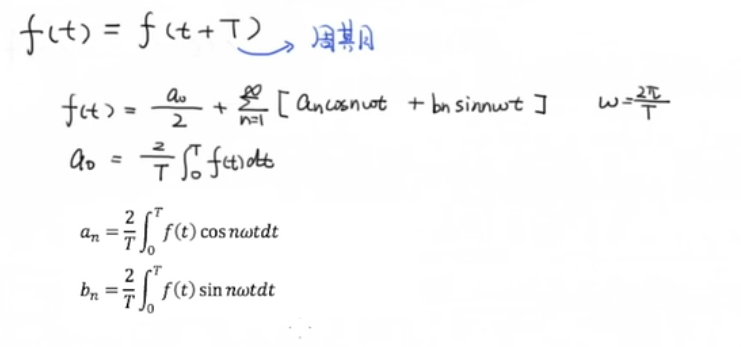 f(t) = f(t+T) → 周期
f(t) = a₀/2 + ∑ₙ₌₁^∞ [ aₙcosnωt + bₙsinnωt ] ω=2π/T
a₀ = 2/T ∫₀ᵀ f(t)dt
aₙ = 2/T ∫₀ᵀ f(t) cos nωtdt
bₙ = 2/T ∫₀ᵀ f(t) sin nωtdt